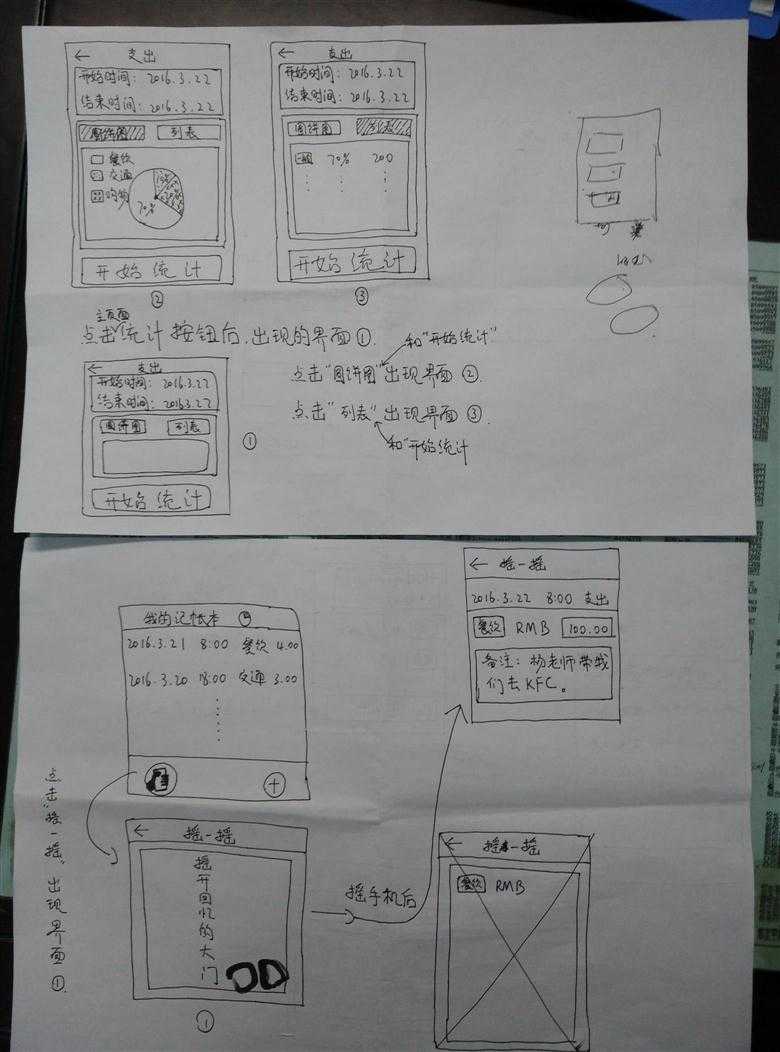 ← 支出
开始时间: 2016.3.22
结束时间: 2016.3.22
圆饼图 列表
餐饮
交通
购物
70%
开始统计
②
← 支出
开始时间: 2016.3.22
结束时间: 2016.3.22
圆饼图 列表
70% 200
开始统计
③
主页面
点击统计按钮后,出现的界面①.
和"开始统计"
点击"圆饼图"出现界面②.
点击"列表"出现界面③.
和"开始统计
← 支出
开始时间: 2016.3.22
结束时间: 2016.3.22
圆饼图 列表
开始统计
①
我的记帐本
2016.3.21 8:00 餐饮 4.00
2016.3.20 18:00 交通 3.00
+
点击"摇一摇"出现界面①.
← 摇一摇
摇开回忆的大门
①
摇手机后
← 摇一摇
2016.3.22 8:00 支出
餐饮 RMB 100.00
备注: 杨老师带我
们去KFC。
← 摇一摇
餐饮 RMB